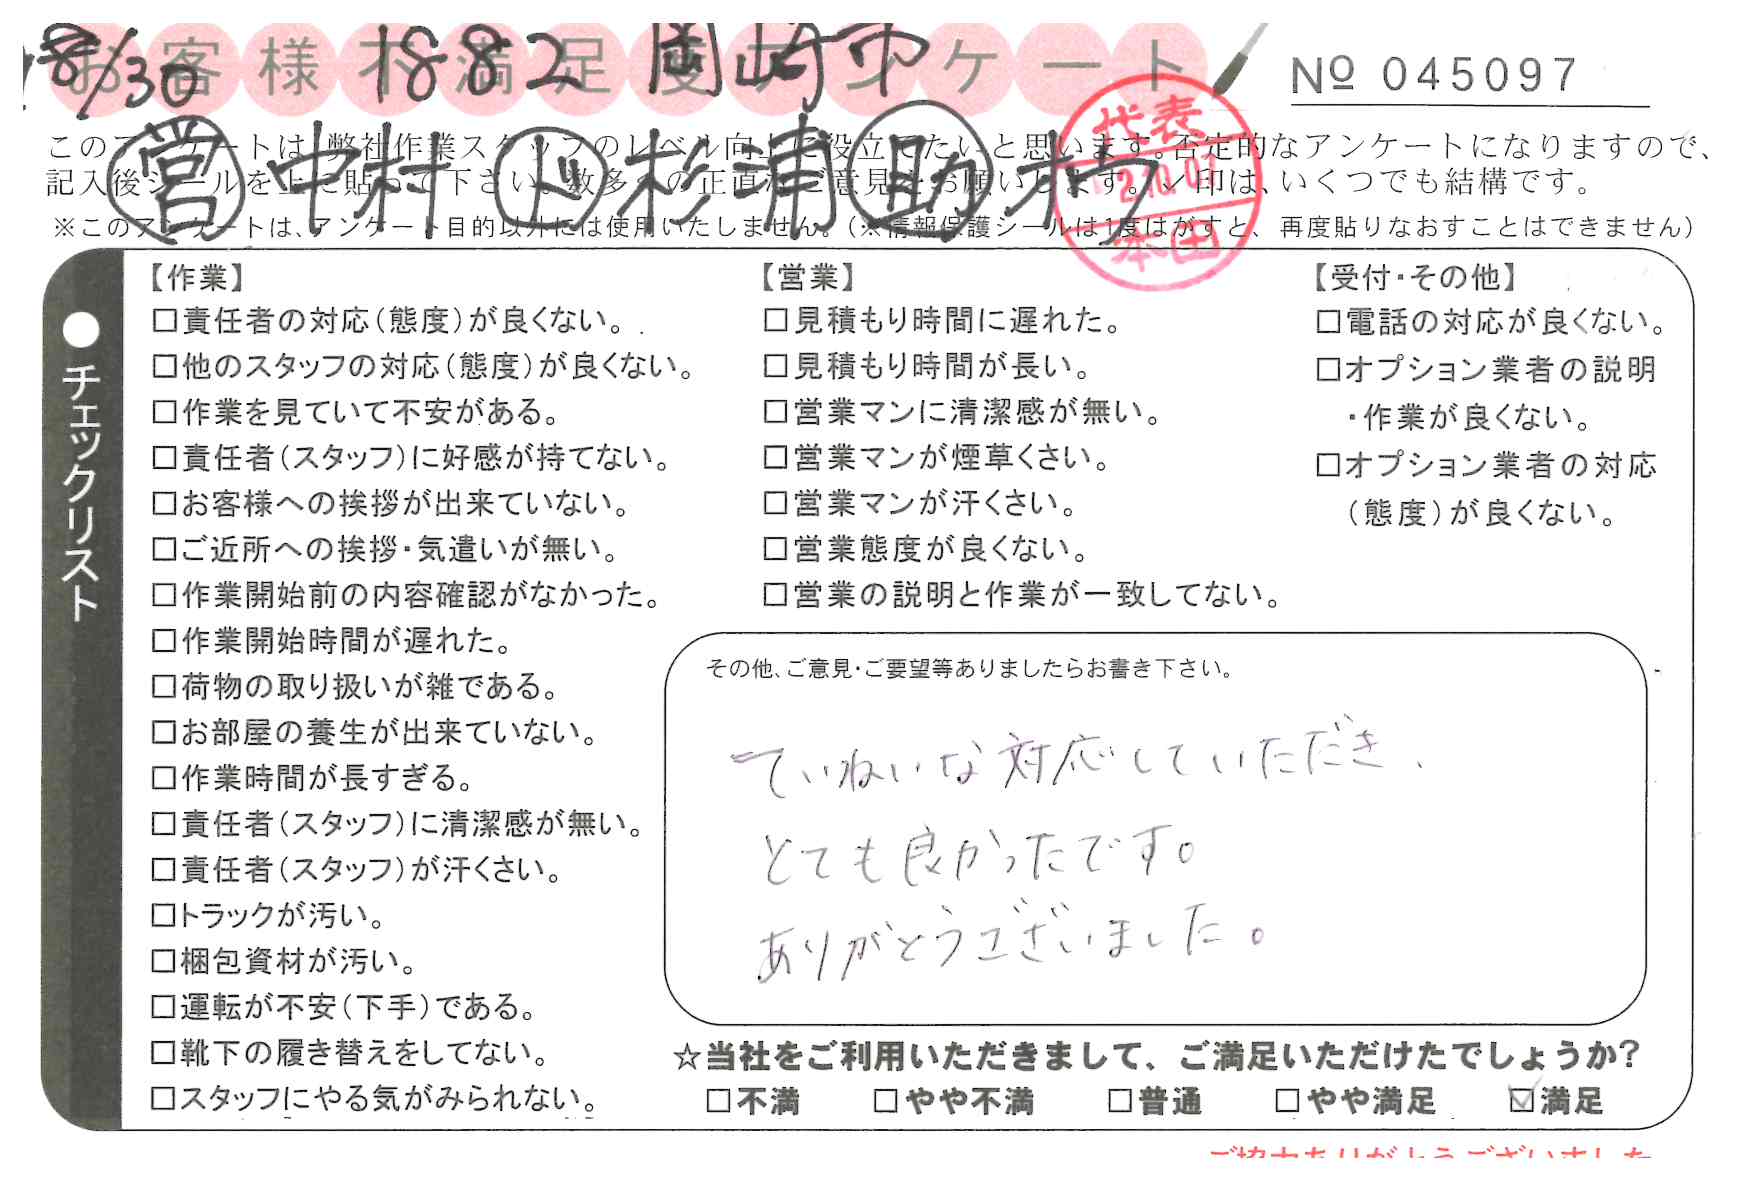 8/30 1882 岡崎市
お客様不満足度アンケート
№ 045097
このアンケートは、弊社作業スタッフのレベル向上に役立てたいと思います。否定的なアンケートになりますので、
営 中村 ド 杉浦 助 木村
記入後シールを上に貼って下さい。数多くの正直なご意見をお願いします。✓印は、いくつでも結構です。
※このアンケートは、アンケート目的以外には使用いたしません。(※情報保護シールは1度はがすと、再度貼りなおすことはできません)
代表
2.10.07
本田
●チェックリスト
【作業】
□責任者の対応(態度)が良くない。
□他のスタッフの対応(態度)が良くない。
□作業を見ていて不安がある。
□責任者(スタッフ)に好感が持てない。
□お客様への挨拶が出来ていない。
□ご近所への挨拶・気遣いが無い。
□作業開始前の内容確認がなかった。
□作業開始時間が遅れた。
□荷物の取り扱いが雑である。
□お部屋の養生が出来ていない。
□作業時間が長すぎる。
□責任者(スタッフ)に清潔感が無い。
□責任者(スタッフ)が汗くさい。
□トラックが汚い。
□梱包資材が汚い。
□運転が不安(下手)である。
□靴下の履き替えをしてない。
□スタッフにやる気がみられない。
【営業】
□見積もり時間に遅れた。
□見積もり時間が長い。
□営業マンに清潔感が無い。
□営業マンが煙草くさい。
□営業マンが汗くさい。
□営業態度が良くない。
□営業の説明と作業が一致してない。
【受付・その他】
□電話の対応が良くない。
□オプション業者の説明
・作業が良くない。
□オプション業者の対応
(態度)が良くない。
その他、ご意見・ご要望等ありましたらお書き下さい。
ていねいな対応していただき、
とても良かったです。
ありがとうございました。
☆当社をご利用いただきまして、ご満足いただけたでしょうか?
□不満 □やや不満 □普通 □やや満足 ☑満足
ご協力ありがとうございました